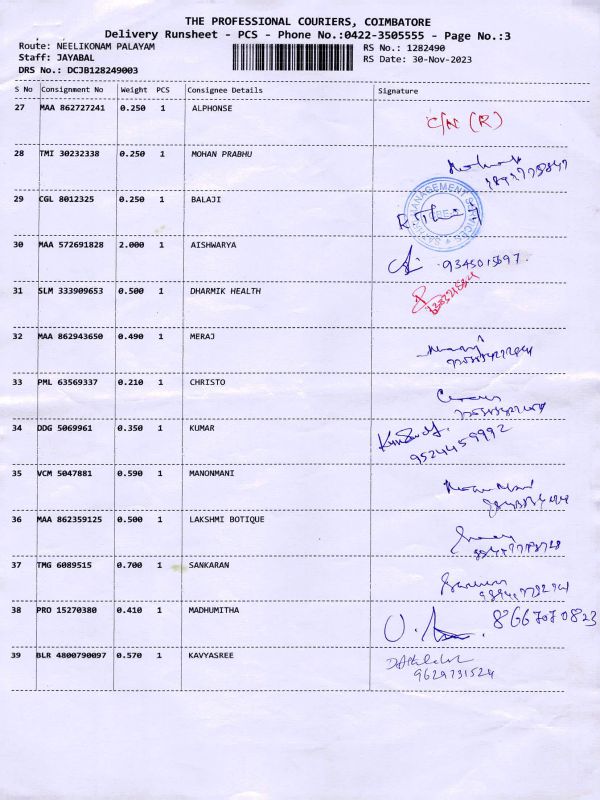 THE PROFESSIONAL COURIERS, COIMBATORE
Delivery Runsheet - PCS - Phone No.:0422-3505555 - Page No.:3
Route: NEELIKONAM PALAYAM RS No.: 1282490
Staff: JAYABAL RS Date: 30-Nov-2023
DRS No.: DCJB128249003
S No Consignment No Weight PCS Consignee Details Signature
27 MAA 862727241 0.250 1 ALPHONSE
C/N (R)
28 TMI 30232338 0.250 1 MOHAN PRABHU
29 CGL 8012325 0.250 1 BALAJI
30 MAA 572691828 2.000 1 AISHWARYA
9345015697
31 SLM 333909653 0.500 1 DHARMIK HEALTH
32 MAA 862943650 0.490 1 MERAJ
33 PML 63569337 0.210 1 CHRISTO
34 DDG 5069961 0.350 1 KUMAR
9524459992
35 VCM 5047881 0.590 1 MANONMANI
36 MAA 862359125 0.500 1 LAKSHMI BOTIQUE
37 TMG 6089515 0.700 1 SANKARAN
38 PRO 15270380 0.410 1 MADHUMITHA
8667070823
39 BLR 4800790097 0.570 1 KAVYASREE
9629731524